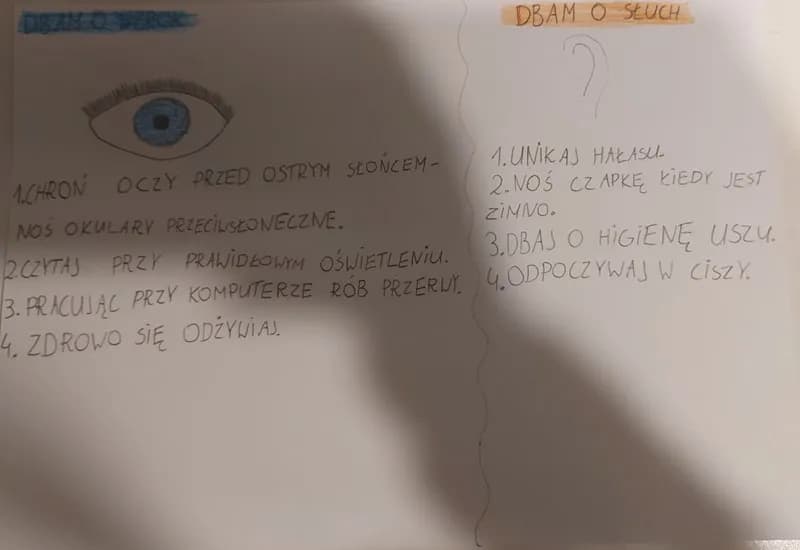 DBAM O WZROK
1. CHROŃ OCZY PRZED OSTRYM SŁOŃCEM -
NOŚ OKULARY PRZECIWSŁONECZNE.
2. CZYTAJ PRZY PRAWIDŁOWYM OŚWIETLENIU.
3. PRACUJĄC PRZY KOMPUTERZE RÓB PRZERWY.
4. ZDROWO SIĘ ODŻYWIAJ.
DBAM O SŁUCH
1. UNIKAJ HAŁASU.
2. NOŚ CZAPKĘ KIEDY JEST
ZIMNO.
3. DBAJ O HIGIENĘ USZU.
4. ODPOCZYWAJ W CISZY.